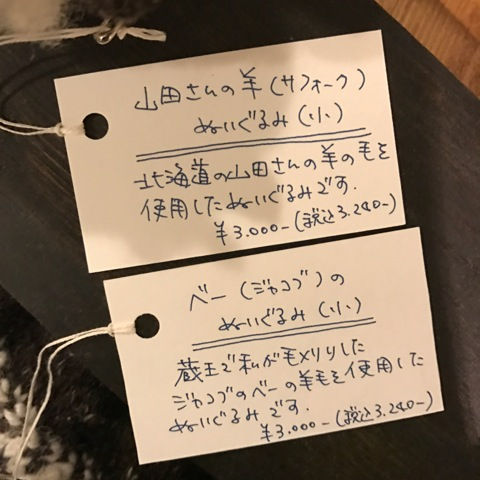 山田さんの羊(サフォーク)
ぬいぐるみ(小)
北海道の山田さんの羊の毛を
使用したぬいぐるみです.
¥3.000-(税込3.240-)
ベー(ジャコブ)の
ぬいぐるみ(小)
蔵王で私が毛メリリした
ジャコブのベーの羊毛を使用した
ぬいぐるみです.
¥3.000-(税込3.240-)